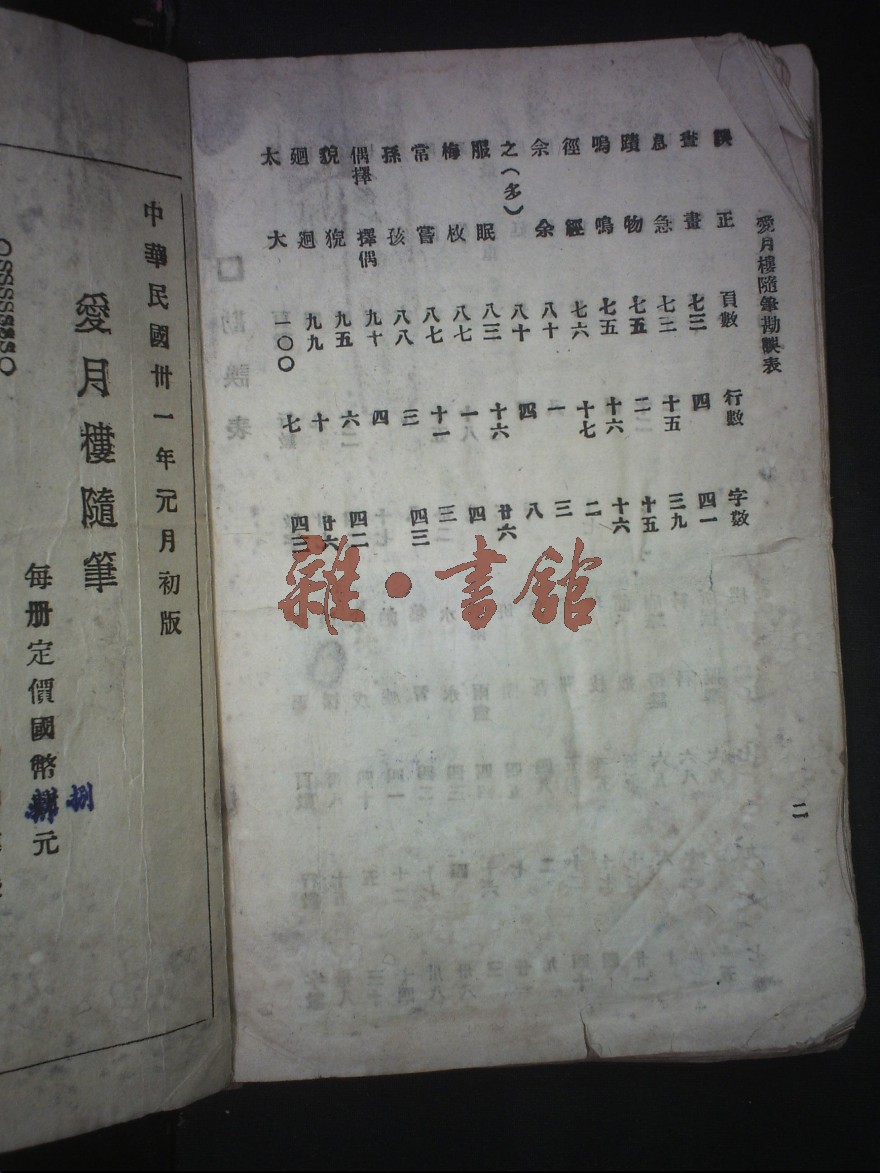 愛月樓隨筆勘誤表
誤 正 頁數 行數 字數
查 畫 七三 四 四一
息 急 七三 十五 三九
蹟 物 七五 二 十五
嗚 鳴 七五 十六 十六
徑 經 七六 十七 二
余 八十 一 三
之(多) 八十 四 八
服 眠 八三 十六 廿六
梅 枚 八七 一 四
常 嘗 八七 十一 三
孫 孩 八八 三 四三
偶擇 擇偶 九十 四
貌 猊 九五 六 四二
廻 迴 九九 十 廿六
太 大 一〇〇 七 四三
二
雜·書舘
中華民國卅一年元月初版
愛月樓隨筆
每册定價國幣捌元